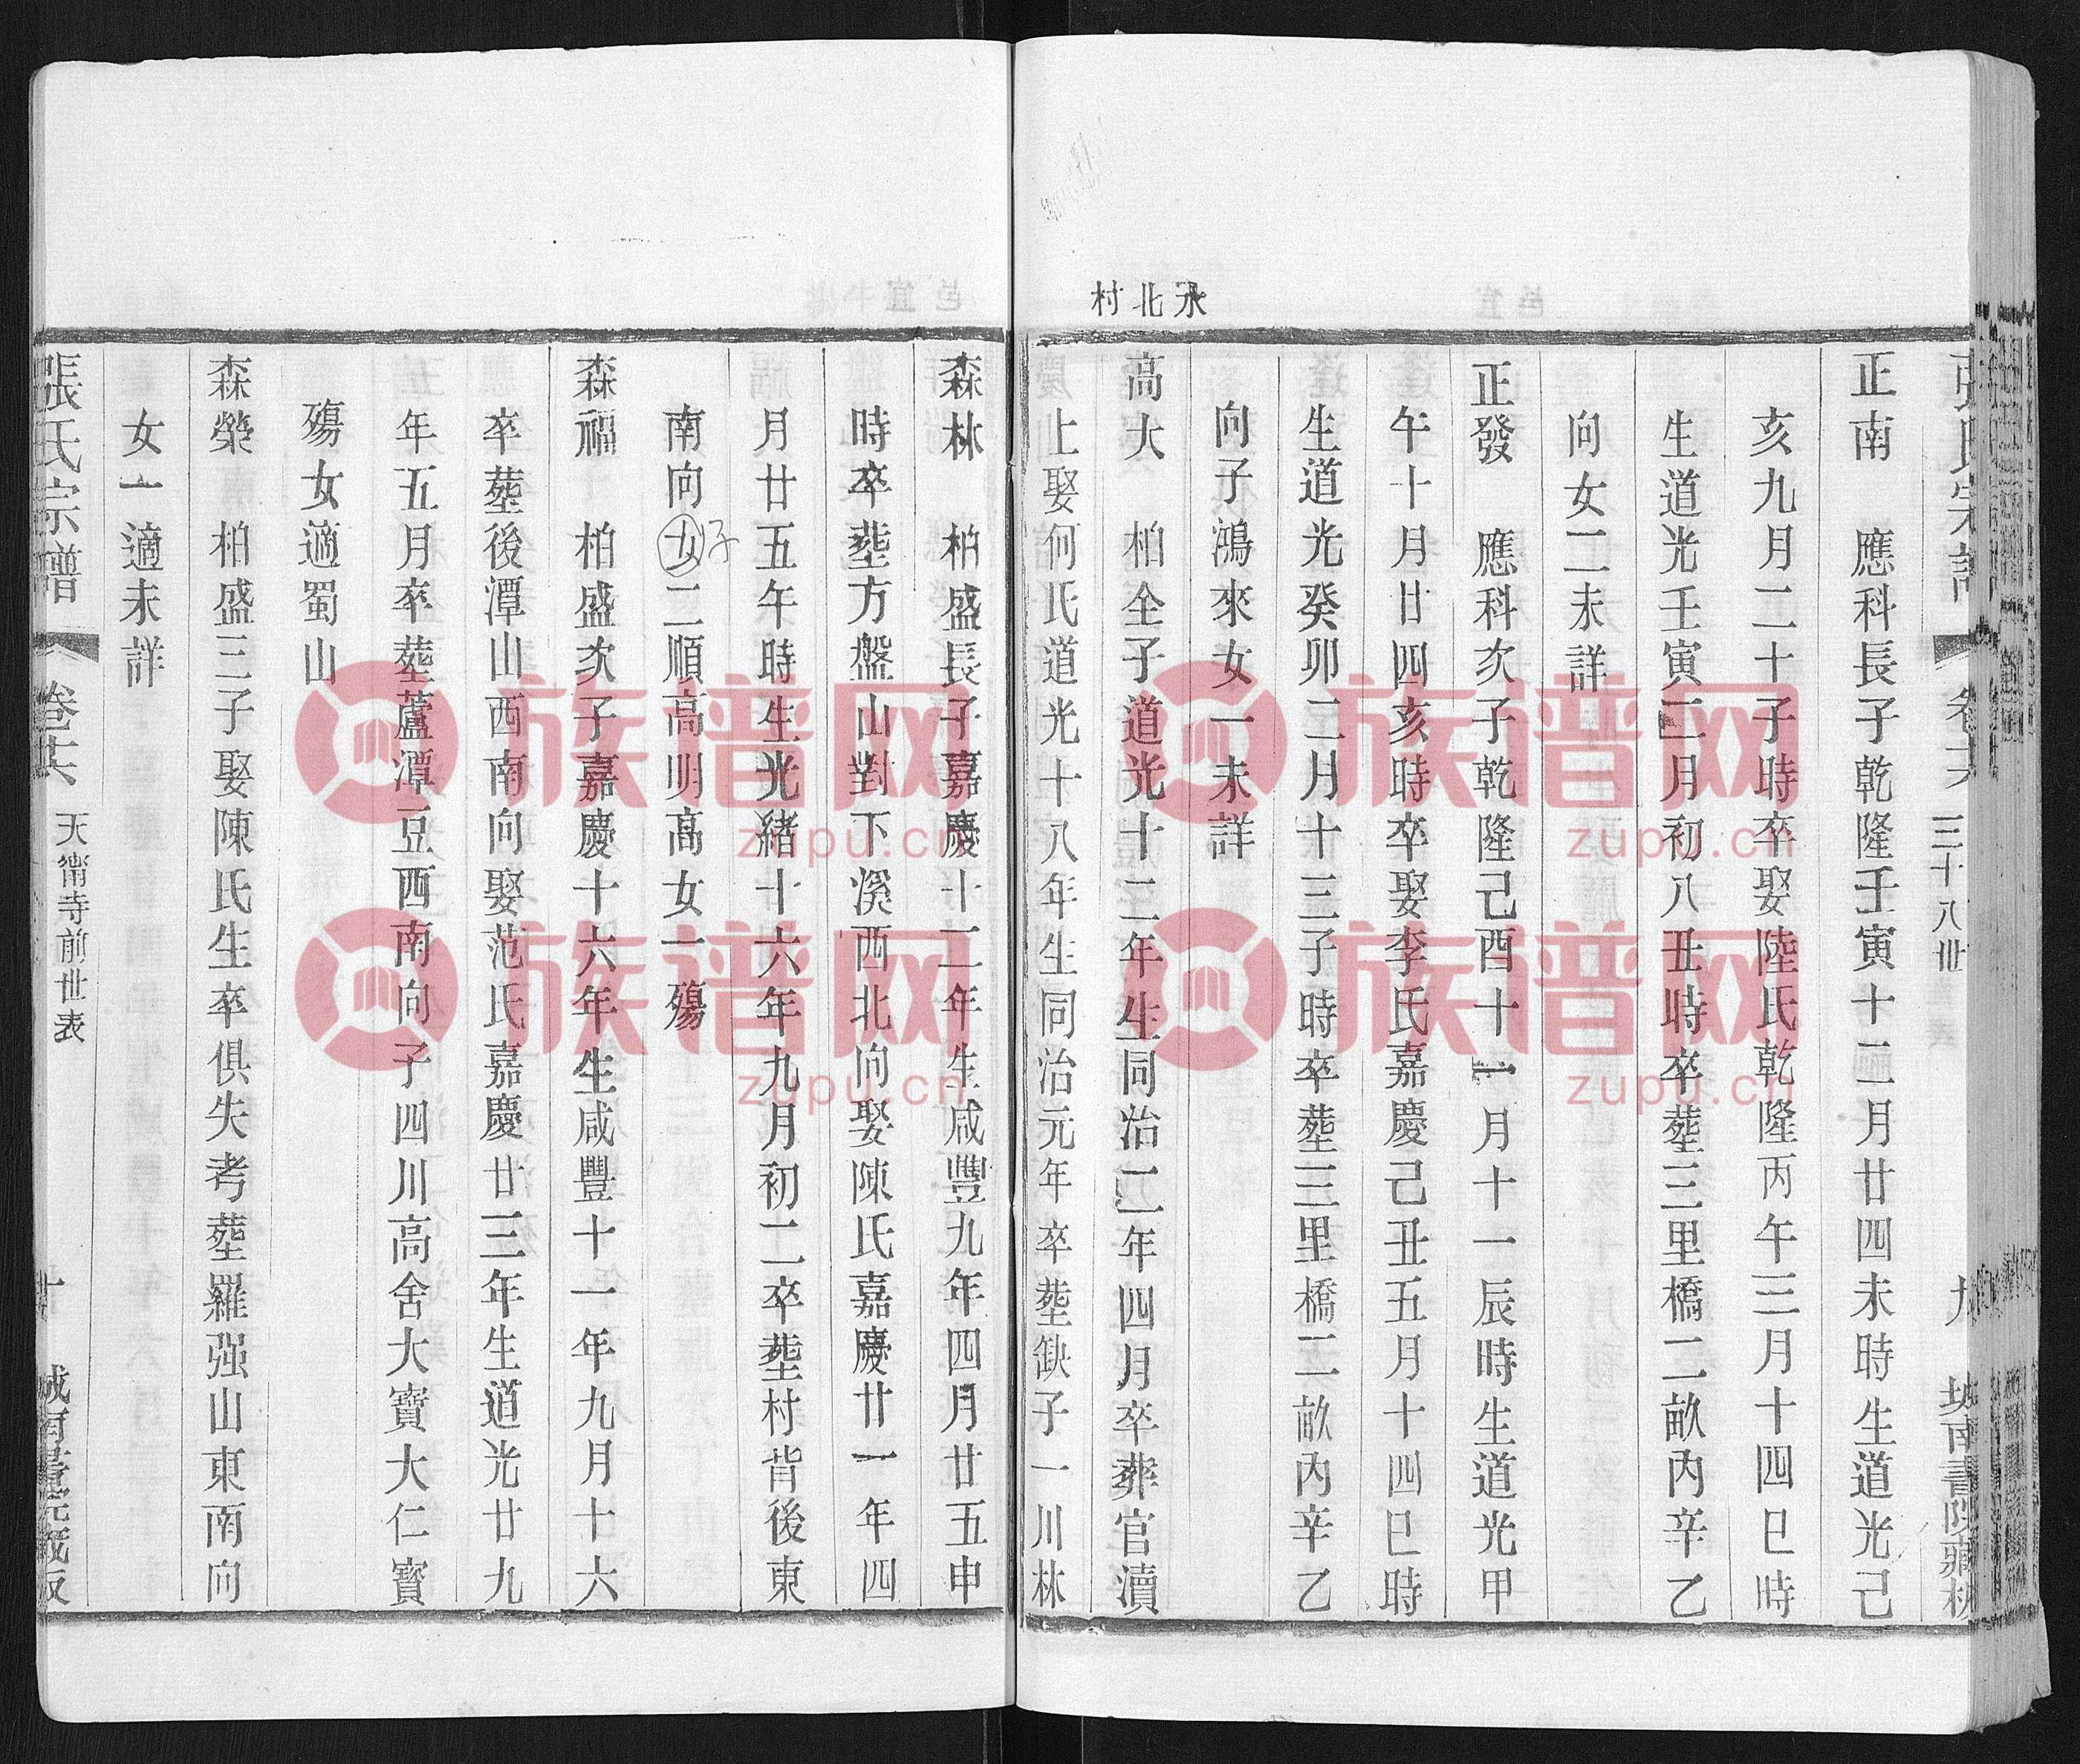 永北村
正南　應科長子乾隆壬寅十二月廿四未時生道光己
亥九月二十子時卒娶陸氏乾隆丙午三月十四巳時
生道光壬寅二月初八丑時卒塟三里橋二畝內辛乙
向女二未詳
正發　應科次子乾隆己酉十一月十一辰時生道光甲
午十月廿四亥時卒娶李氏嘉慶己丑五月十四巳時
生道光癸卯二月十三子時卒塟三里橋二畝內辛乙
向子鴻來女一未詳
高大　柏全子道光十二年生同治二年四月卒葬官瀆
上娶何氏道光十八年生同治元年卒塟缺子一川林
三十八世
九
森林　柏盛長子嘉慶十二年生咸豐九年四月廿五申
時卒塟方盤山對下溪西北向娶陳氏嘉慶廿一年四
月廿五午時生光緒十六年九月初二卒塟村背後東
南向女子二順高明高女一殤
森福　柏盛次子嘉慶十六年生咸豐十一年九月十六
卒塟後潭山西南向娶范氏嘉慶廿三年生道光廿九
年五月卒塟蘆潭豆西南向子四川高舍大寶大仁寶
殤女適蜀山
森榮　柏盛三子娶陳氏生卒俱失考塟羅强山東南向
女一適未詳
張氏宗譜　卷廿六　天甯寺前世表　十　城南書院藏板
族谱网
zupu.cn
族谱网
zupu.cn
族谱网
zupu.cn
族谱网
zupu.cn